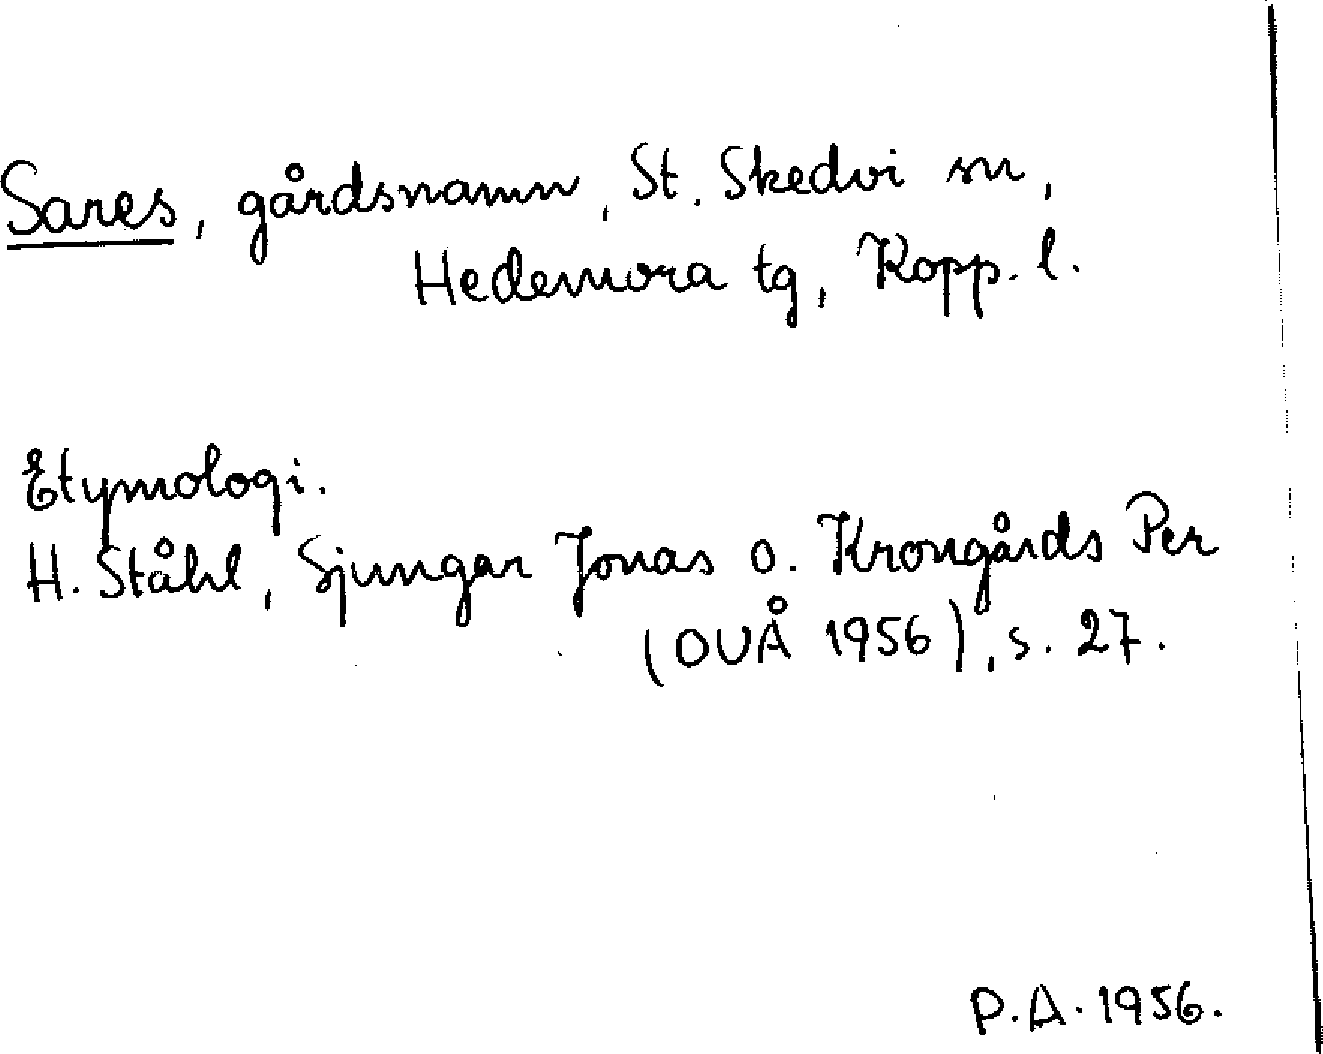 Sares, gårdsnamn, St. Skedvi sn,
Hedemora tg, Kopp. l.
Etymologi.
H. Ståhl, Sjungar Jonas o. Krongårds Per
(OUÅ 1956), s. 27.
P.A. 1956.